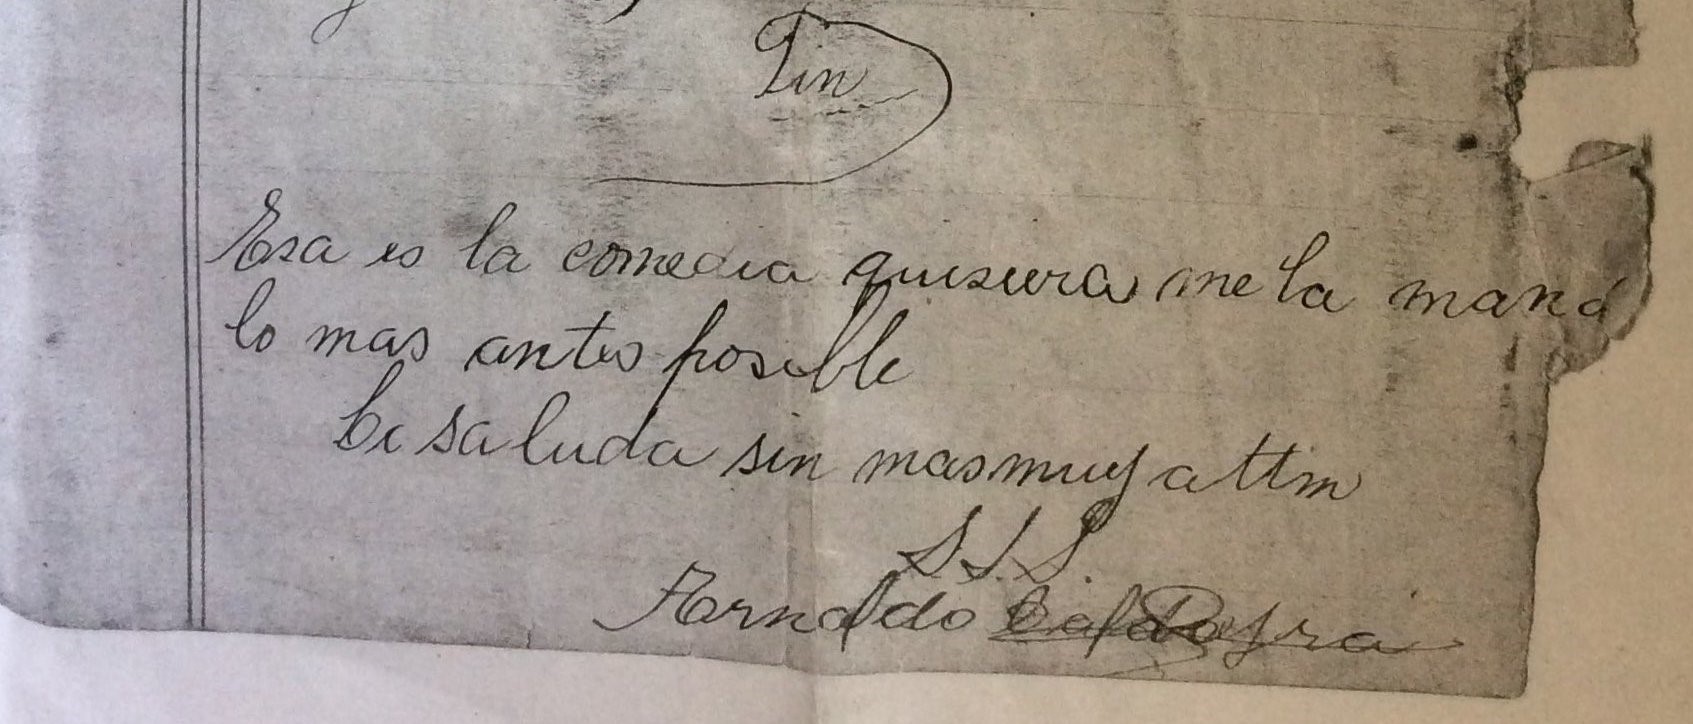 Fin
Esa es la comedia quisiera me la mand
lo mas antes posible
Le saluda sin mas muy attm
S.S.S.
Arnaldo